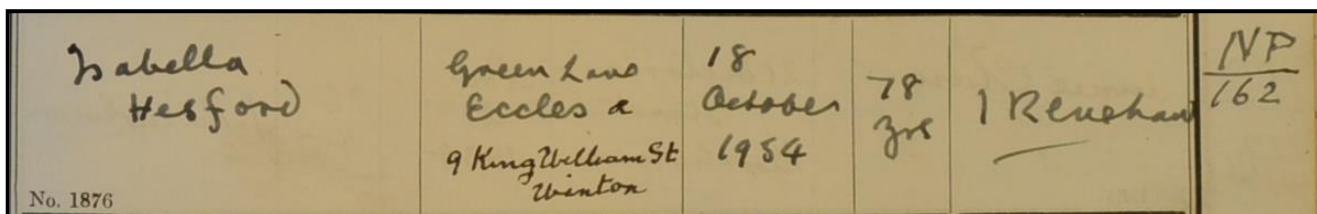 Isabella
Hesford
No. 1876
Green Lane
Eccles &
9 King William St
Winton
18
October
1954
78
yrs
J Renshaw
NP
162